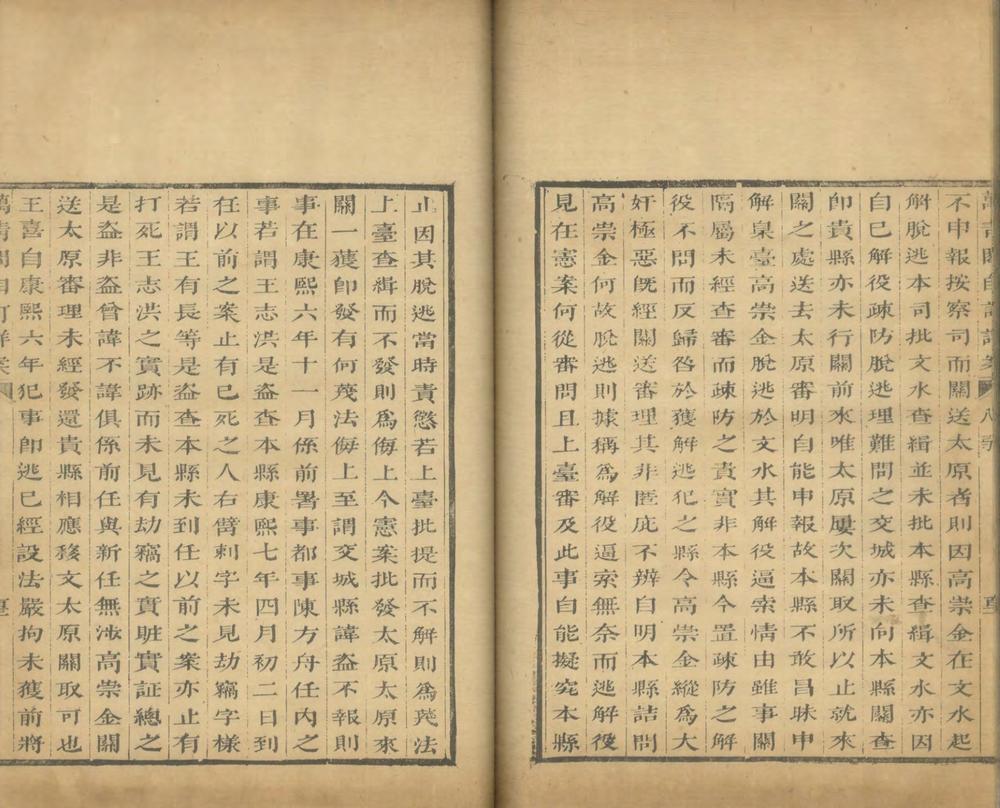 不申報按察司而關送太原者則因高崇金在文水起
解脫逃本司批文水查緝並未批本縣查緝文水亦因
自已解役疎防脫逃理難問之交城亦未向本縣關查
卽貴縣亦未行關前來唯太原屢次關取所以止就來
關之處送去太原審明自能申報故本縣不敢昌昧申
解臬臺高崇金脫逃於文水其解役逼索情由雖事關
隔屬未經查審而疎防之責實非本縣今置疎防之解
役不問而反歸咎於獲解逃犯之縣令高崇金縱為大
奸極惡旣經關送審理其非匿庇不辨自明本縣詰問
高崇金何故脫逃則據稱為解役逼索無奈而逃解役
見在憲案何從審問且上臺審及此事自能擬究本縣
止因其脫逃當時責懲若上臺批提而不解則為蔑法
上臺查緝而不發則為侮上今憲案批發太原太原來
關一獲卽發有何蔑法侮上至謂交城縣諱盜不報則
事在康熙六年十一月係前署事都事陳方舟任內之
事若謂王志洪是盜查本縣康熙七年四月初二日到
任以前之案止有已死之人右臂刺字未見劫竊字樣
若謂王有長等是盜查本縣未到任以前之案亦止有
打死王志洪之實跡而未見有劫竊之實賍實証總之
是盜非盜曾諱不諱俱係前任與新任無涉高崇金關
送太原審理未經發還貴縣相應移文太原關取可也
王喜自康熙六年犯事卽逃已經設法嚴拘未獲前將